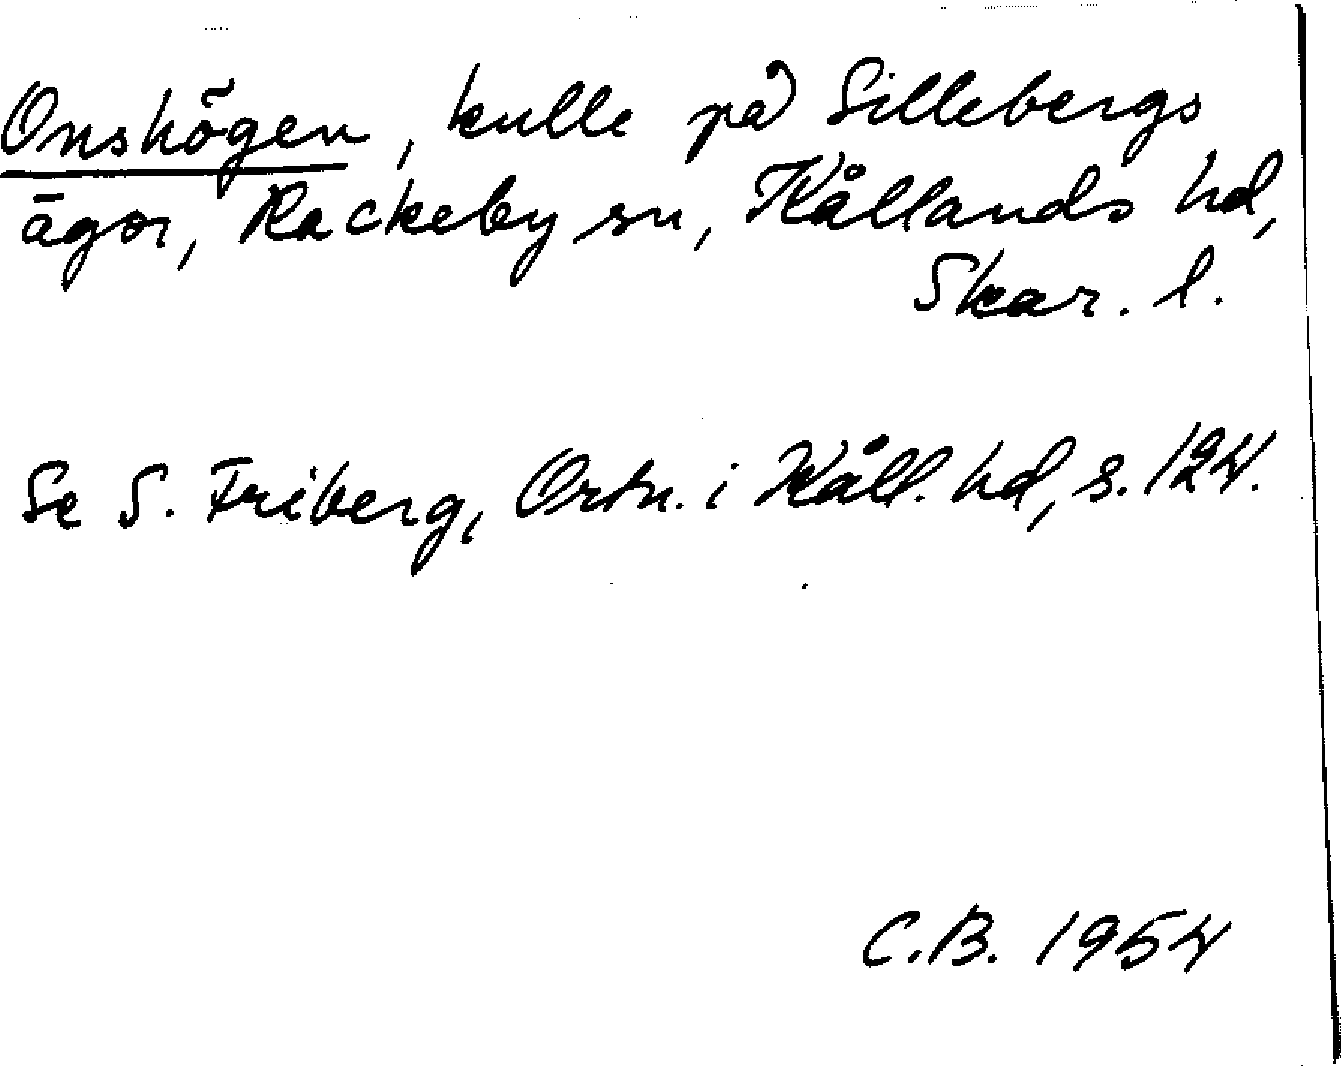 Onshögen, kulle på Sillebergs
ägor, Rackeby sn, Kållands hd,
Skar. l.
Se S. Friberg, Ortn. i Kåll. hd, s. 124.
C.B. 1954